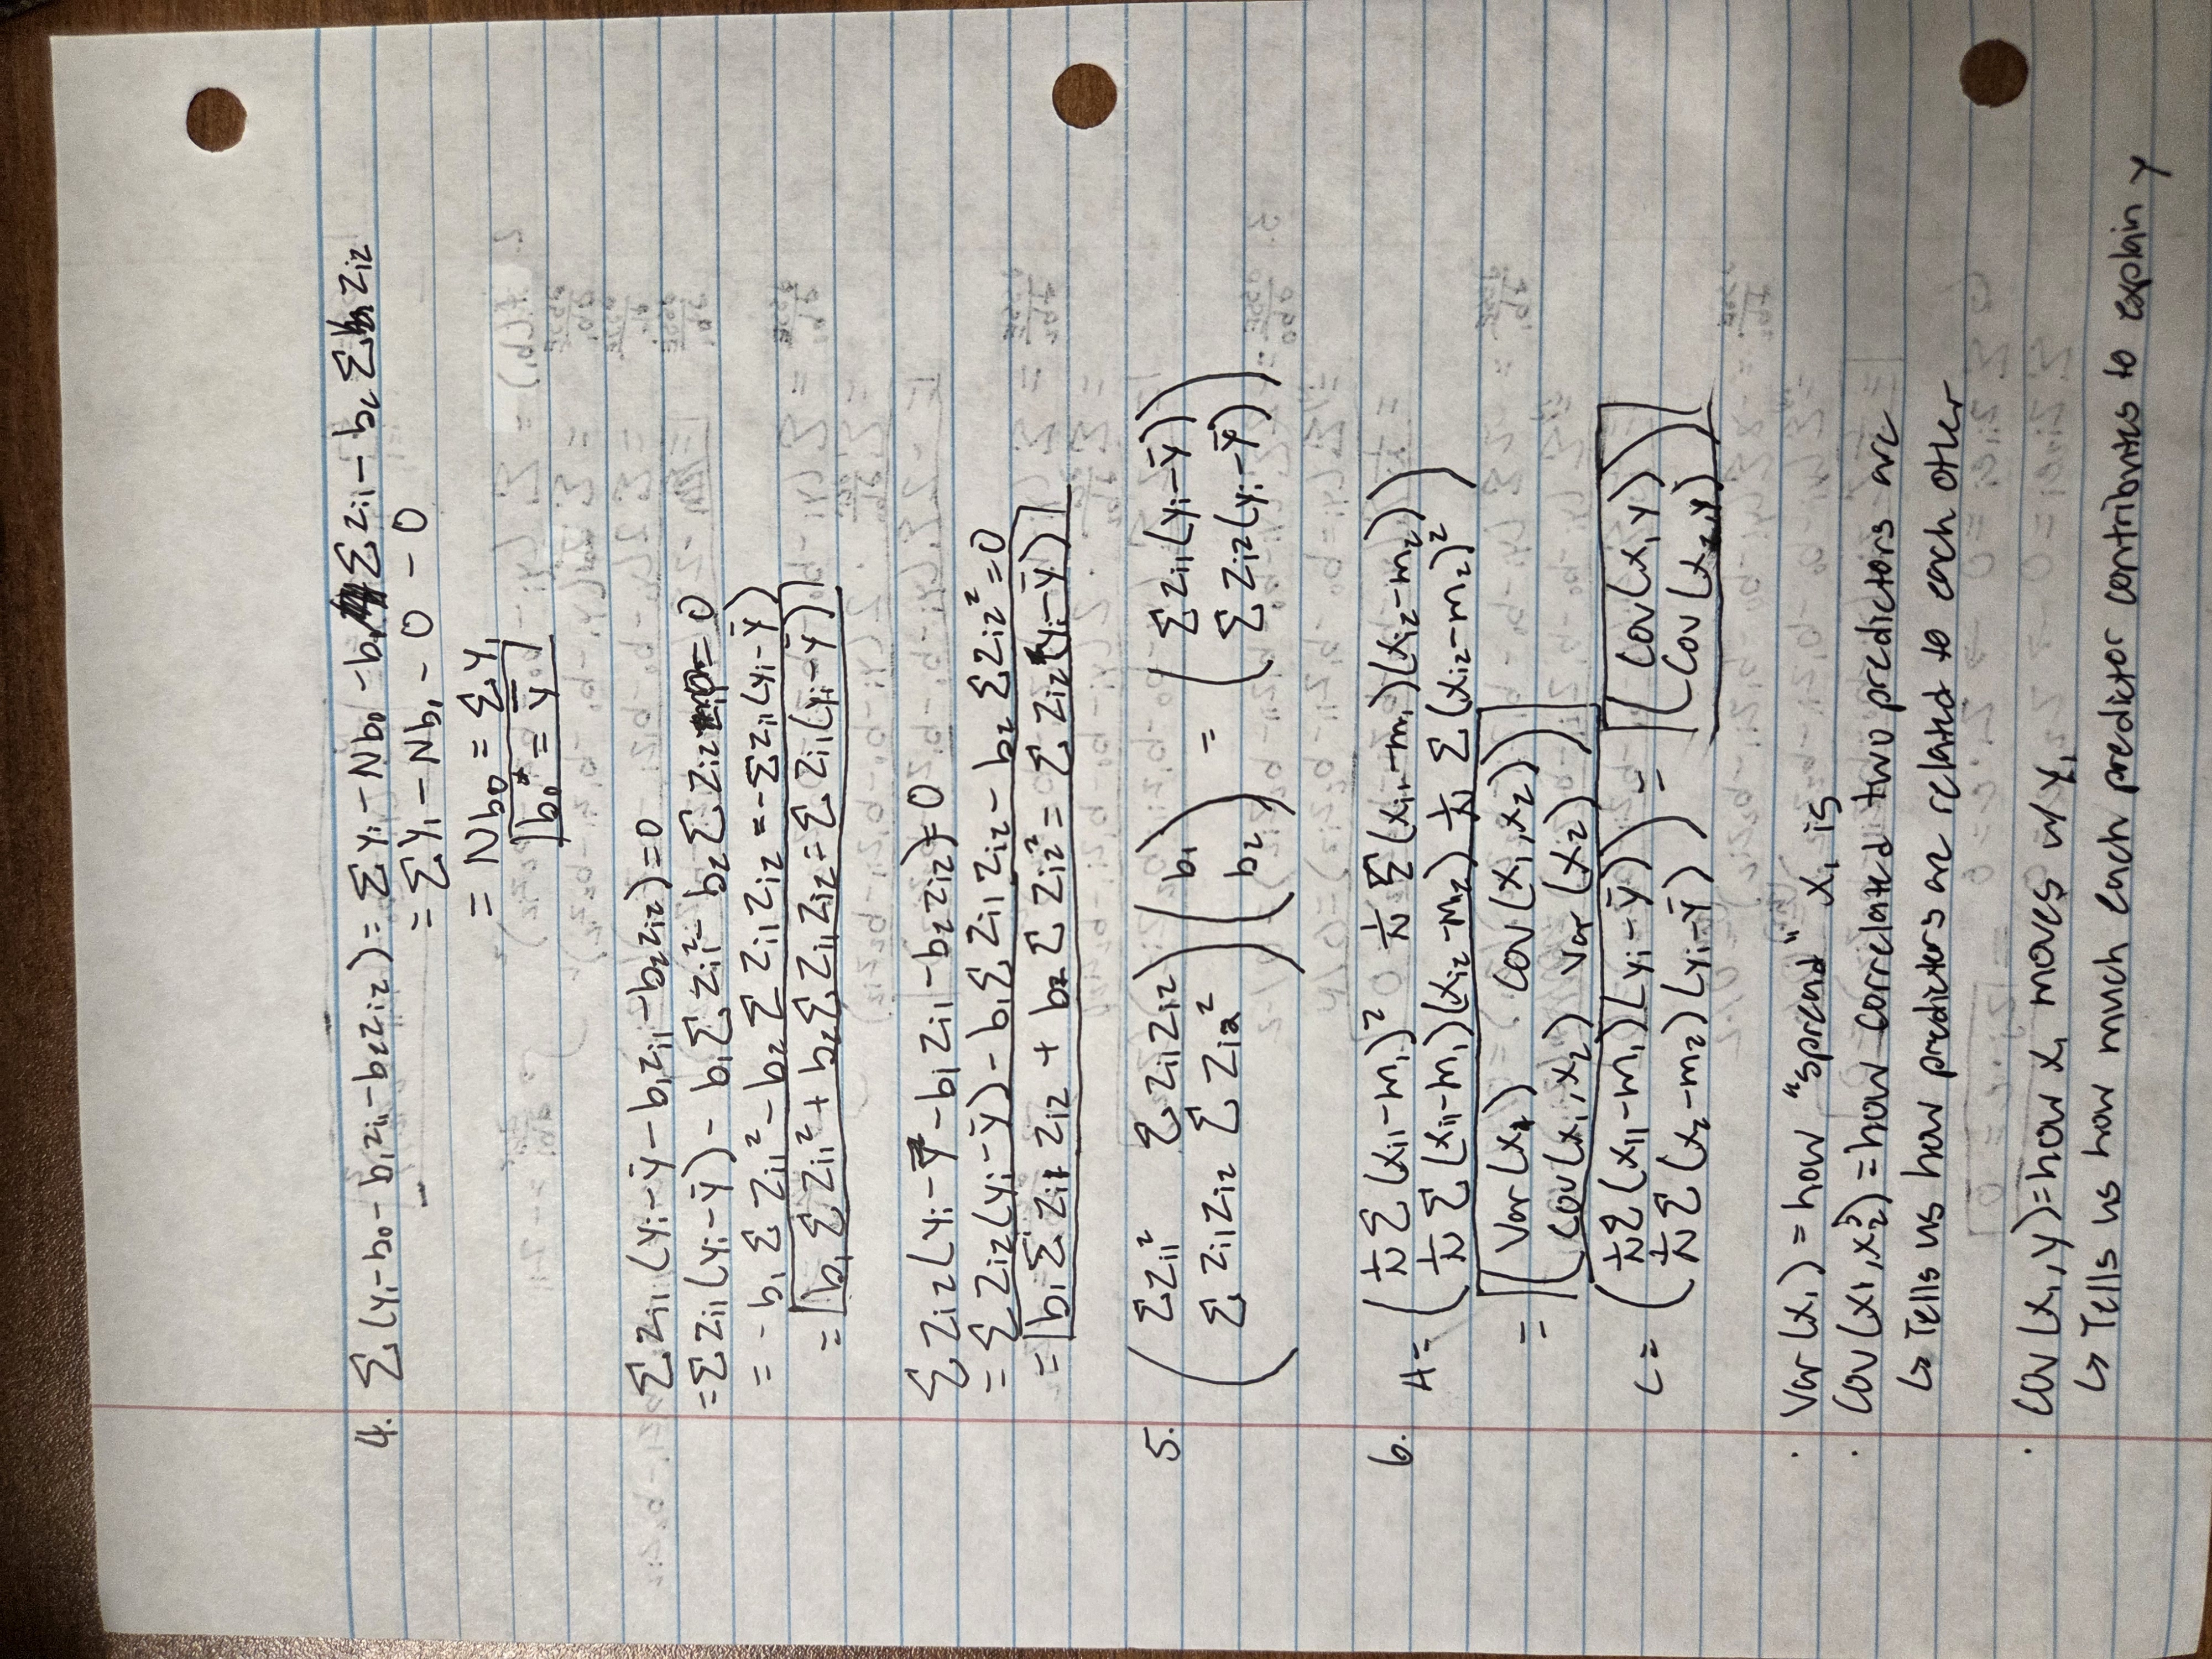 4. Σ(yi-b0-b1zi1-b2zi2) = Σyi - Nb0 - b1Σzi1 - b2Σzi2
= Σyi - Nb1 - 0 - 0
= Nb0 = Σyi
b0* = ȳ
Σzi1(yi-ȳ-b1zi1-b2zi2)=0
=Σzi1(yi-ȳ) - b1Σzi1² - b2Σzi2 = 0
= -b1Σzi1² - b2Σzi1zi2 = -Σzi1(yi-ȳ)
= b1Σzi1² + b2Σzi1zi2 = Σzi1(yi-ȳ)
Σzi2(yi-ȳ-b1zi1-b2zi2)=0
= Σzi2(yi-ȳ) - b1Σzi1zi2 - b2Σzi2²=0
= b1Σzi1zi2 + b2Σzi2² = Σzi2(yi-ȳ)
5. (Σzi1² Σzi1zi2) (b1) = (Σzi1(yi-ȳ))
(Σzi1zi2 Σzi2²) (b2) (Σzi2(yi-ȳ))
6. A= (1/N Σ(xi1-m1)² 1/N Σ(xi1-m1)(xi2-m2))
(1/N Σ(xi1-m1)(xi2-m2) 1/N Σ(xi2-m2)²)
= (Var(x1) Cov(x1,x2))
(Cov(x1,x2) Var(x2))
C= (1/N Σ(xi1-m1)(yi-ȳ)) = (Cov(x1y))
(1/N Σ(x2-m2)(yi-ȳ)) (Cov(x2,y))
· Var(x1) = how "spread" x1 is
· Cov(x1,x2) = how correlated two predictors are
↳ Tells us how predictors are related to each other
· Cov(x1,y)=how x1 moves w/ y,
↳ Tells us how much each predictor contributes to explain y